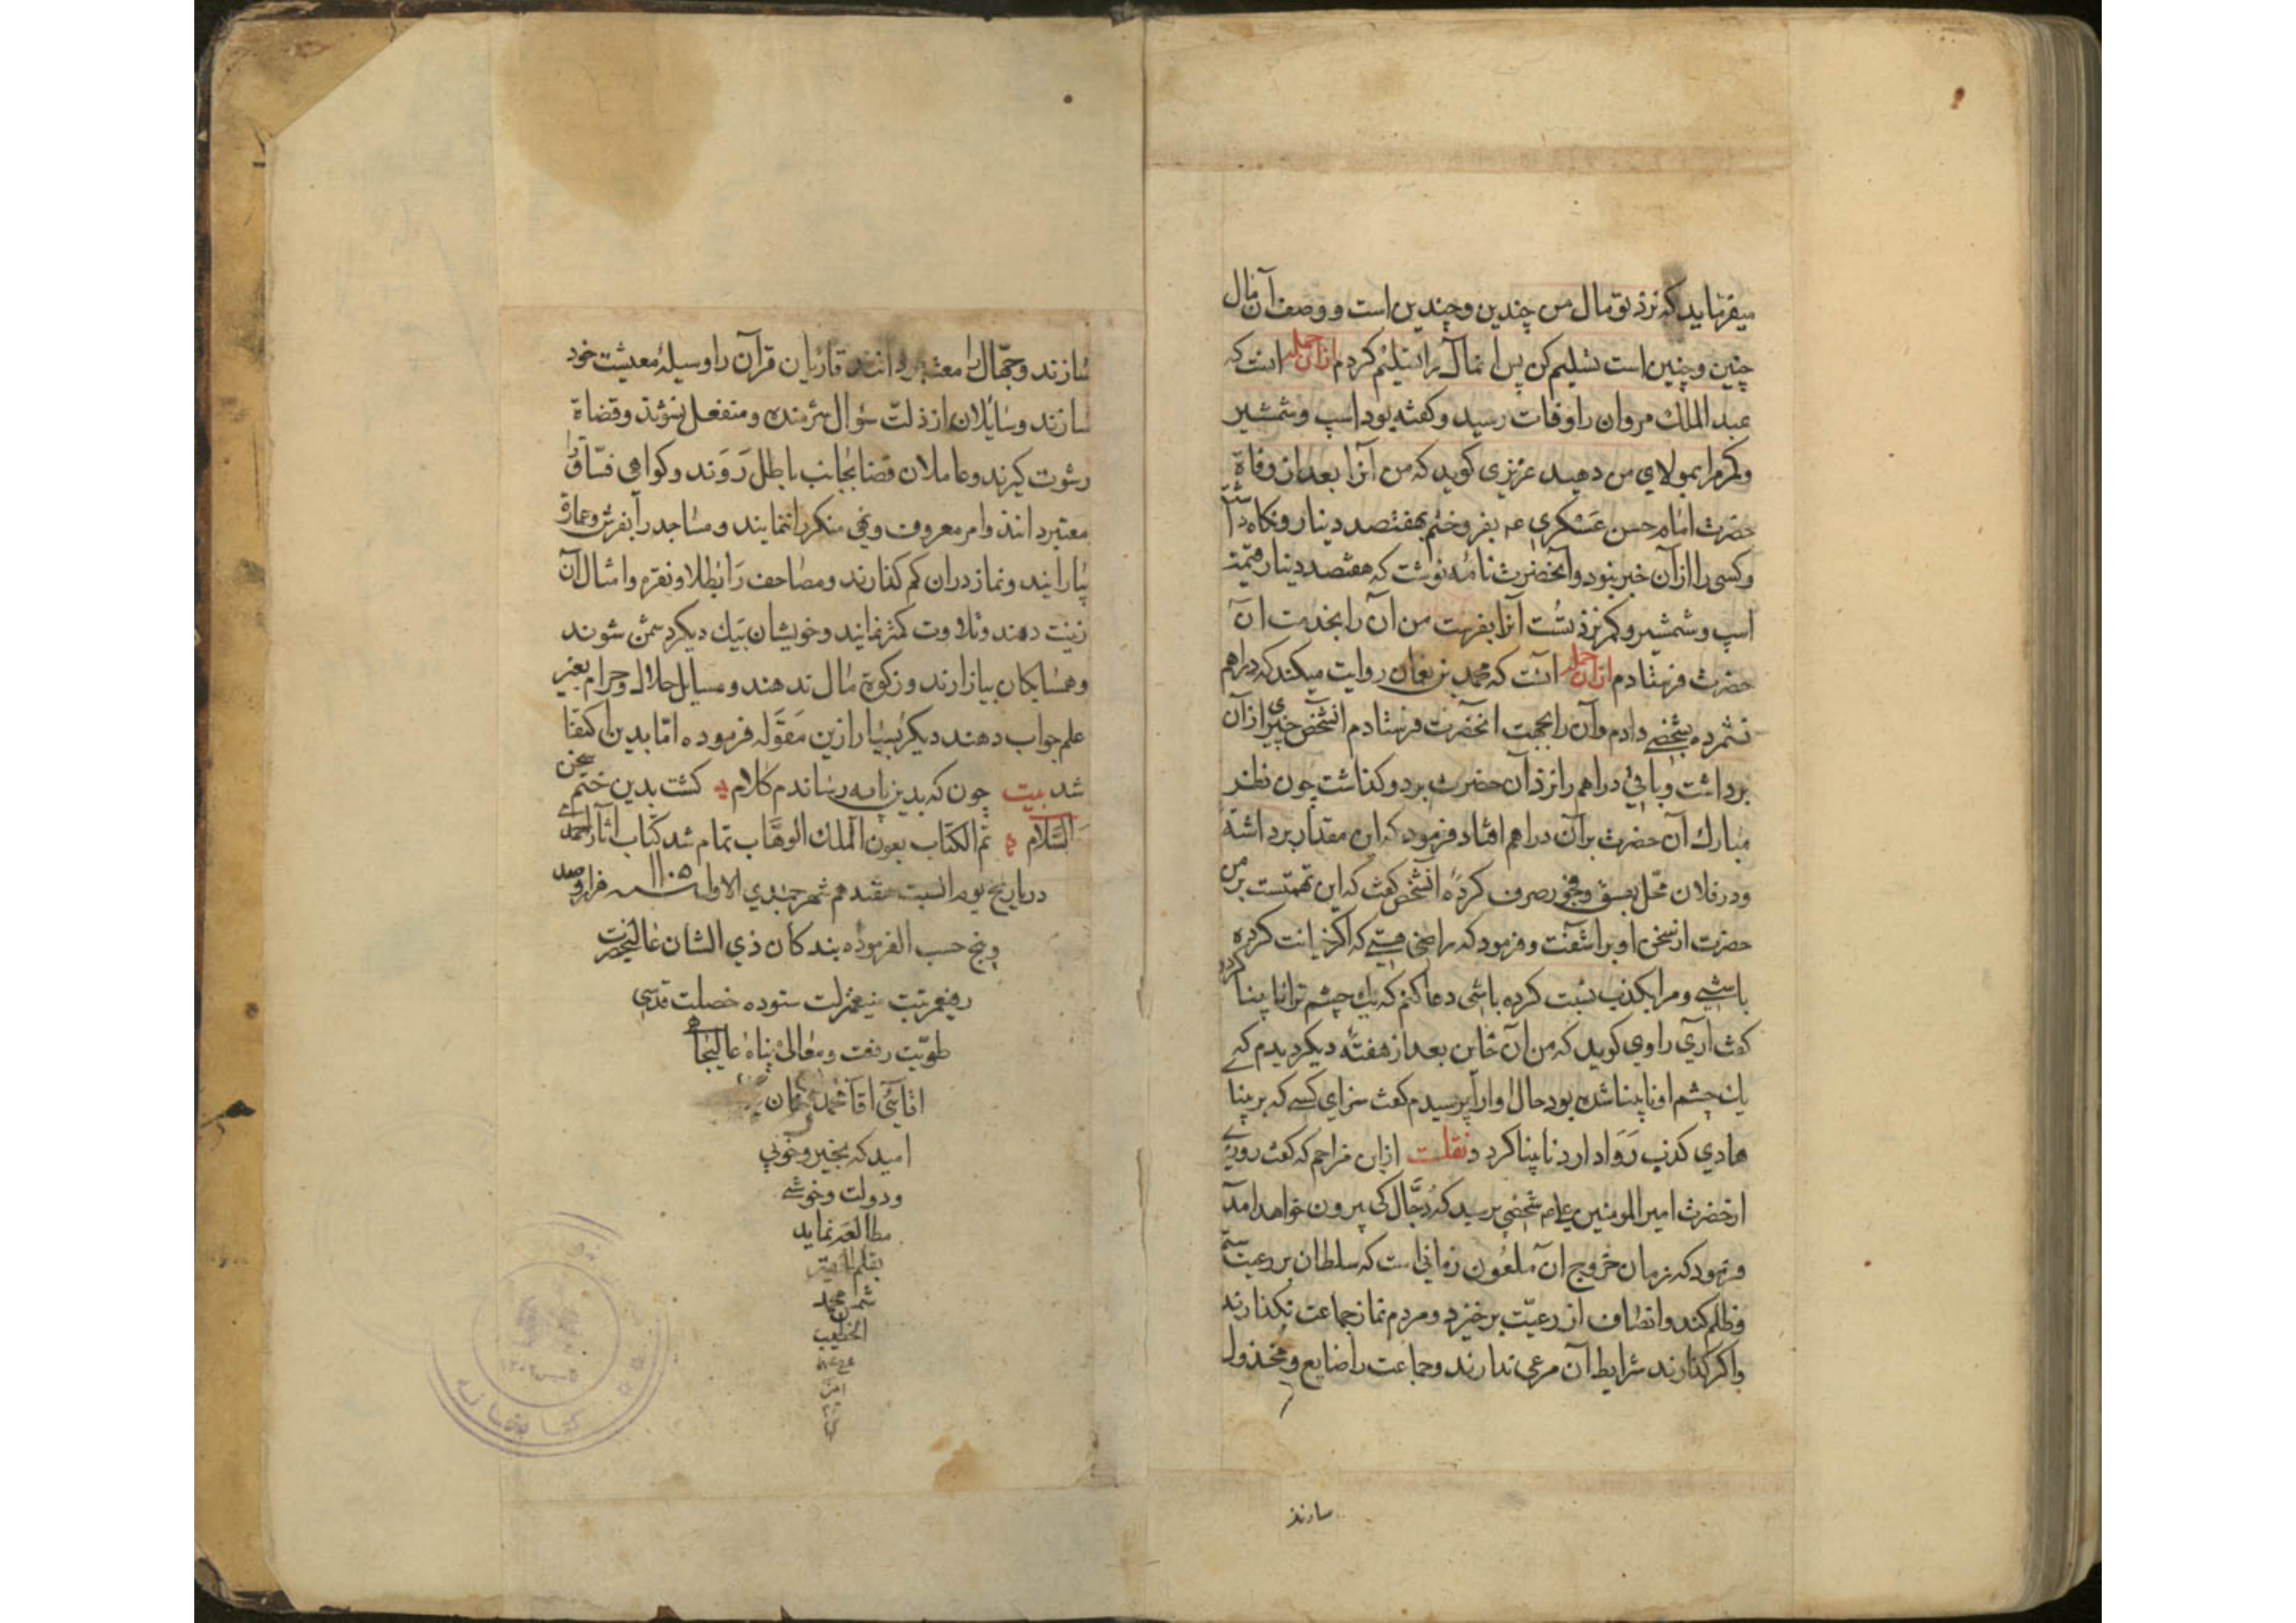 میفرماید که نزد تو مال من چندین و چندین است و وصف آن مال
چنین و چنین است تسلیم کن پس انمال را تسلیم کردم ازان جمله انست که
عبد الملك مروان را وفات رسید و کفته بود اسپ و شمشیر
و کمر مرا بمولای من دهید عزیزی کوید که من آنرا بعد ان وفاة
حضرت امام حسن عسکری عم بفروختم بهفتصد دینار و نکاه داشتم
و کسی را ازآن خبر نبود و آنحضرت نامه نوشت که هفتصد دینار قیمت
اسپ و شمشیر و کمر نزد تست آنرا بفرست من آن را بخدمت آن
حضرت فرستادم ازان جمله آنست که محمد بن نعمان روایت میکند که دراهم
نشمرده بشخصی دادم وآن را بجهت انحضرت فرستادم انشخص چیزی ازآن
برداشت و باقی دراهم را نزد آن حضرت برد و کذاشت چون نظر
مبارك آن حضرت بر آن دراهم افتاد فرمود که این مقدار برداشته
ودر فلان محل بفسق و فجور صرف کرده انشخص کفت که این تهمتست بر من
حضرت از سخن او بر اشفت و فرمود که راضی هستی که اکر خیانت کرده
باشی و مرا بکذب نسبت کرده باشی دعا کنم که یك چشم ترا نا بینا کردد
کفت آری راوی کوید که من آن خاین بعد از هفته دیکر دیدم که
یك چشم او نابینا شده بود حال او را پرسیدم کفت سزای کسی که بر بینا
هادی کذب روا دارد نابینا کردد نقلست ازابن مزاحم که کفت روزی
ازحضرت امیر المومنین علیه م شخصی پرسید که دجال کی بیرون خواهد آمد
فرمود که زمان خروج آن ملعون زمانی است که سلطان بر رعیت ستم
و ظلم کند و انصاف از رعیت بر خیزد و مردم نماز جماعت نکذارند
واکر کذارند شرایط آن مرعی ندارند و جماعت را ضایع و مخذول
سازند
سازند و جمّال را معتبر دانند قاریان قرآن را وسیلهٔ معیشت خود
سازند و سایلان از ذلت سؤال شرمنده و منفعل نشوند و قضاة
رشوت کیرند و عاملان قضا بجانب باطل روند و کواهی فسّاق را
معتبر دانند و امر معروف و نهی منکر را ننمایند و مساجد را بفرش و عمارة
بیارایند و نماز دران کم کذارند و مصاحف را بطلا و نقره و امثال آن
زینت دهند و تلاوت کمتر نمایند و خویشان بیك دیکر دشمن شوند
و همسایکان بیازارند و زکوة مال ندهند و مسایل حلال و حرام بغیر
علم جواب دهند دیکر بسیار ازین مقوله فرموده امّا بدین اکتفا
شد بیت چون که بدین پایه رساندم کلام کشت بدین ختم سخن
السّلام تم الکتاب بعون الملك الوهّاب تمام شد کتاب آثار احمدی
درتاریخ یوم السبت هفدهم شهر جمیدی الاول سنه ۱۱۰۵ هزار و صد
و پنج حسب الفرموده بندکان ذی الشان عالیحضرت
رفیعمرتبت منیعمنزلت ستوده خصلت قدسی
طویّت رفعت و معالی پناه عالیجاه
اقائی اقا محمد خان
امید که بخیر و خوبی
و دولت و خوشی
مطالعه نماید
بقلم الفقیر
شمس محمد
الخطیب
کتابخانه